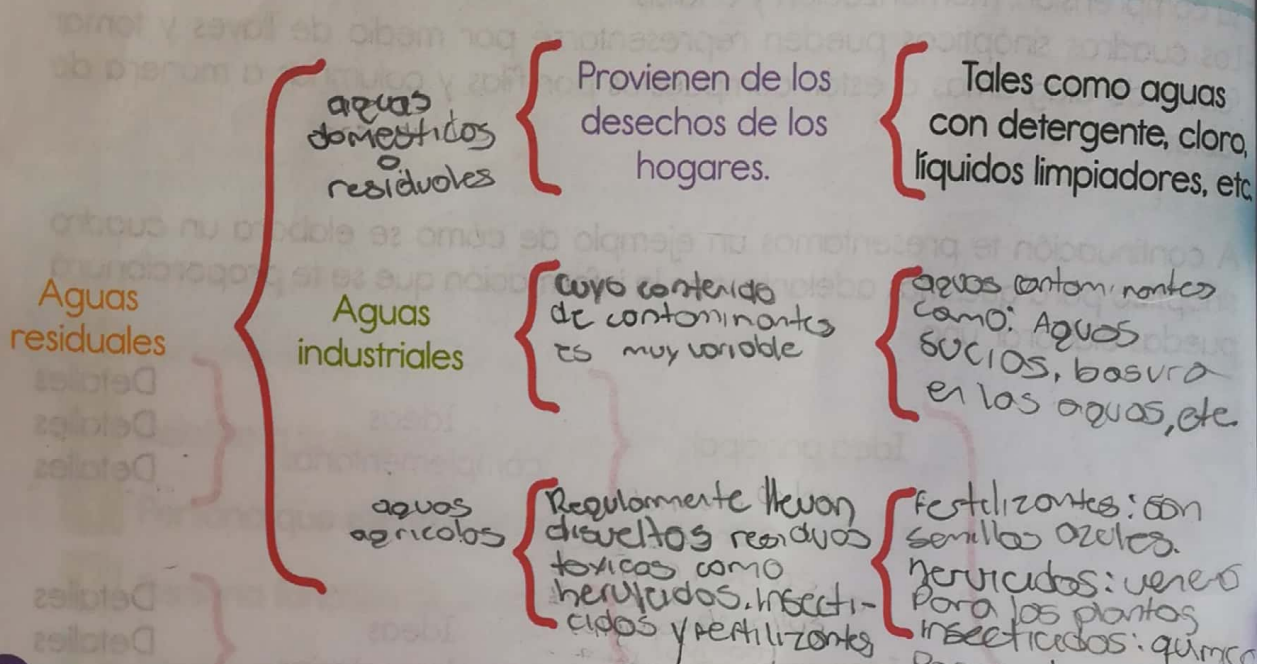 Aguas
residuales
aguas
domesticos
o
residuales
Provienen de los
desechos de los
hogares.
Tales como aguas
con detergente, cloro,
líquidos limpiadores, etc
Aguas
industriales
cuyo contenido
de contaminantes
es muy variable
aguas contaminantes
como: Aguas
sucias, basura
en las aguas, etc.
aguas
agricolas
Regularmente llevan
disueltos residuos
toxicas como
insecti-
cidos y fertilizantes
Fertilizantes: son
semillas azules.
: veneno
Para los plantas
insecticidas: quimico